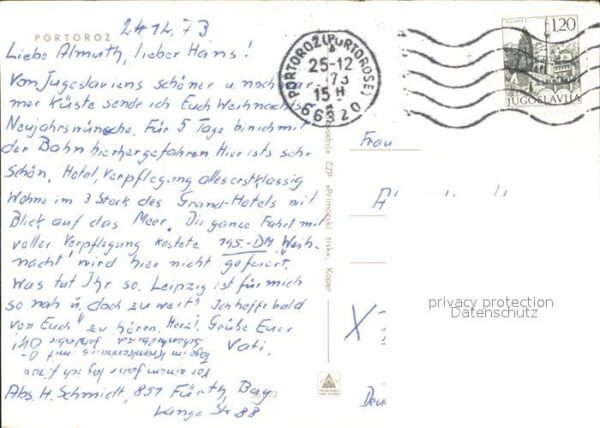 PORTOROŽ
24.12.73
Liebe Almuth, lieber Hans!
Von Jugoslawiens schöner u. noch war
mer Küste sende ich Euch Weihnachts
Neujahrswünsche. Für 5 Tage bin ich mit
der Bahn hierhergefahren Hier ists sehr
schön. Hotel, Verpflegung alles erstklassig
Wohne im 3 Stock des Grand-Hotels mit
Blick auf das Meer. Die ganze Fahrt mit
voller Verpflegung kostete 195.-DM. Weih-
nacht wird hier nicht gefeiert.
Was tut Ihr so. Leipzig ist für mich
so nah u. doch zu weit" Ich hoffe bald
von Euch zu hören. Herzl. Grüße Euer
Vati.
Vor einem Jahr lag ich
Abs. H. Schmidt, 851 Fürth, Bay
Lange Str 88
CZP »Primorski tisk«, Koper
PORTOROŽ (PORTOROSE)
25-12
73
15 H
66320
1,20
JUGOSLAVIJA
Frau
X
privacy protection
Datenschutz